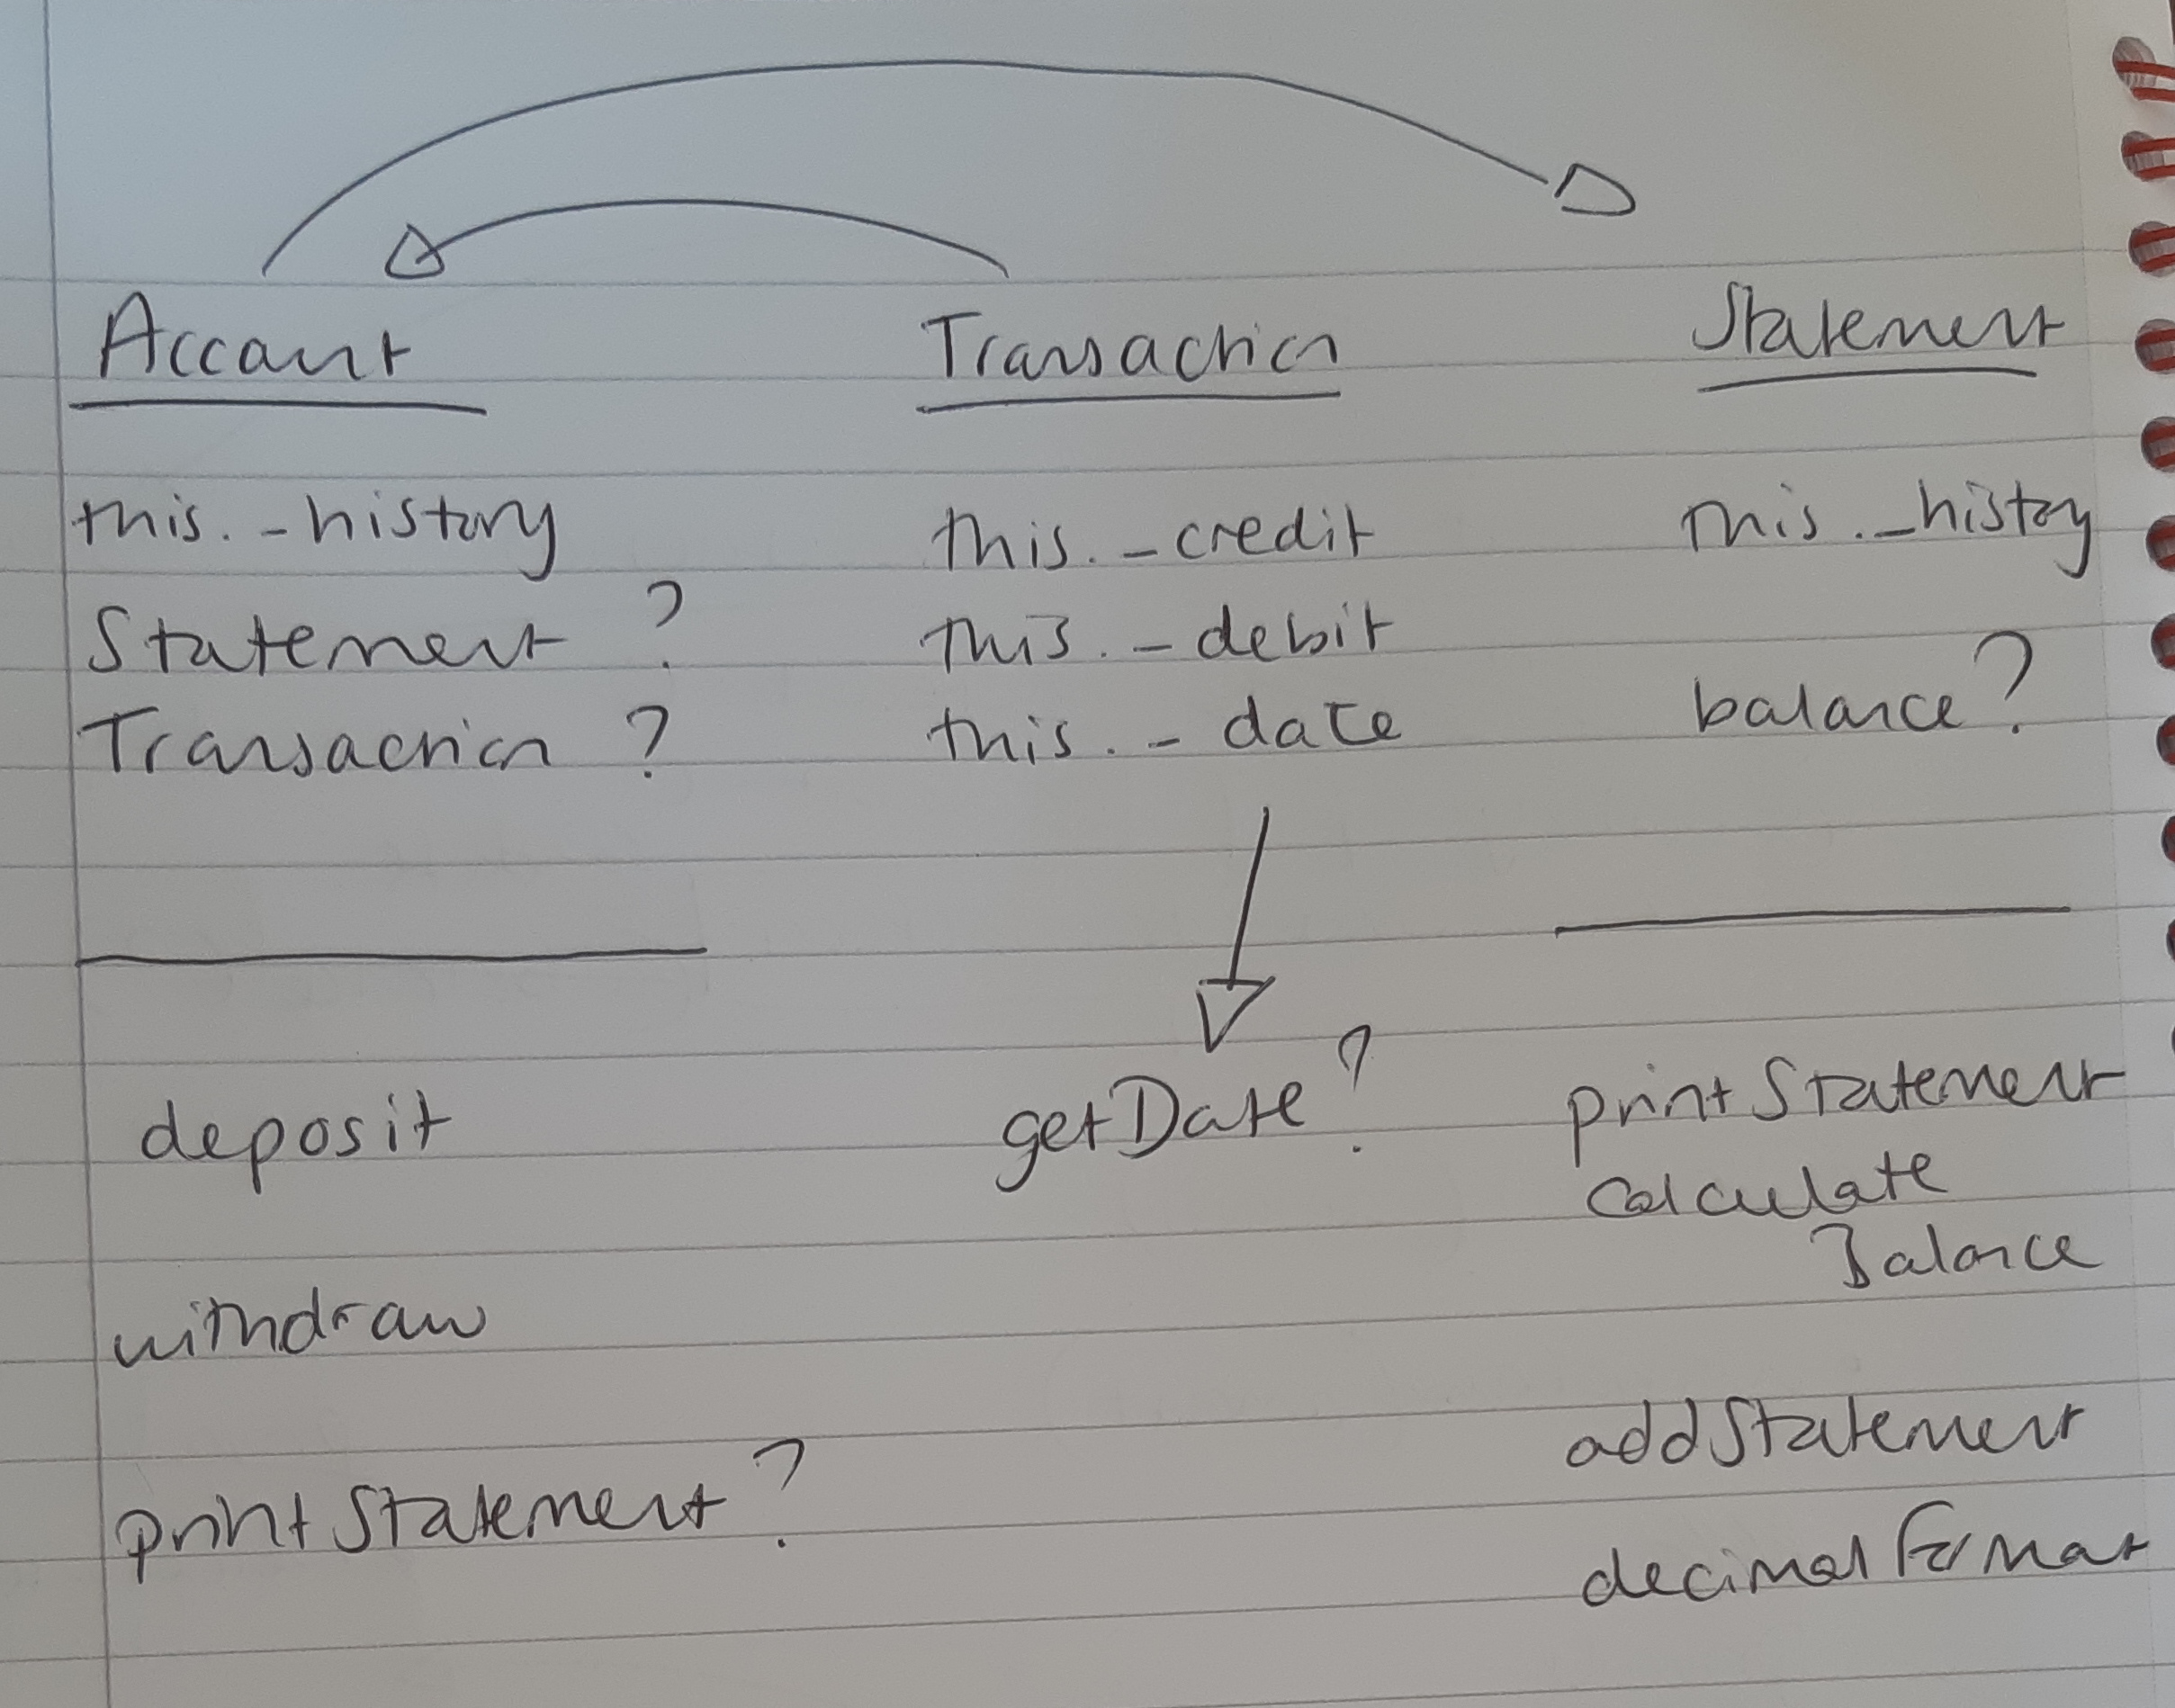 Account
this._history
Statement ?
Transaction ?
deposit
withdraw
printStatement ?
Transaction
this._credit
this._debit
this._date
getDate ?
Statement
this._history
balance ?
printStatement
calculate
Balance
addStatement
decimalFormat